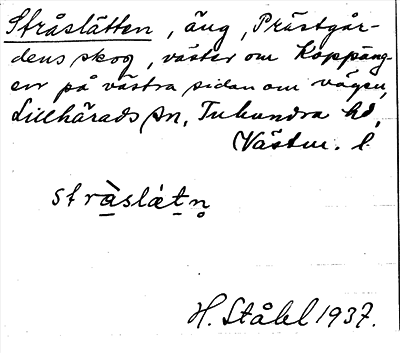 Stråslätten, äng, Prästgår-
dens skog, väster om Koppäng-
en på västra sidan om vägen,
Lillhärads sn, Tuhundra hd,
Västm. l.
stràsláttn̥
H. Ståhl 1937.